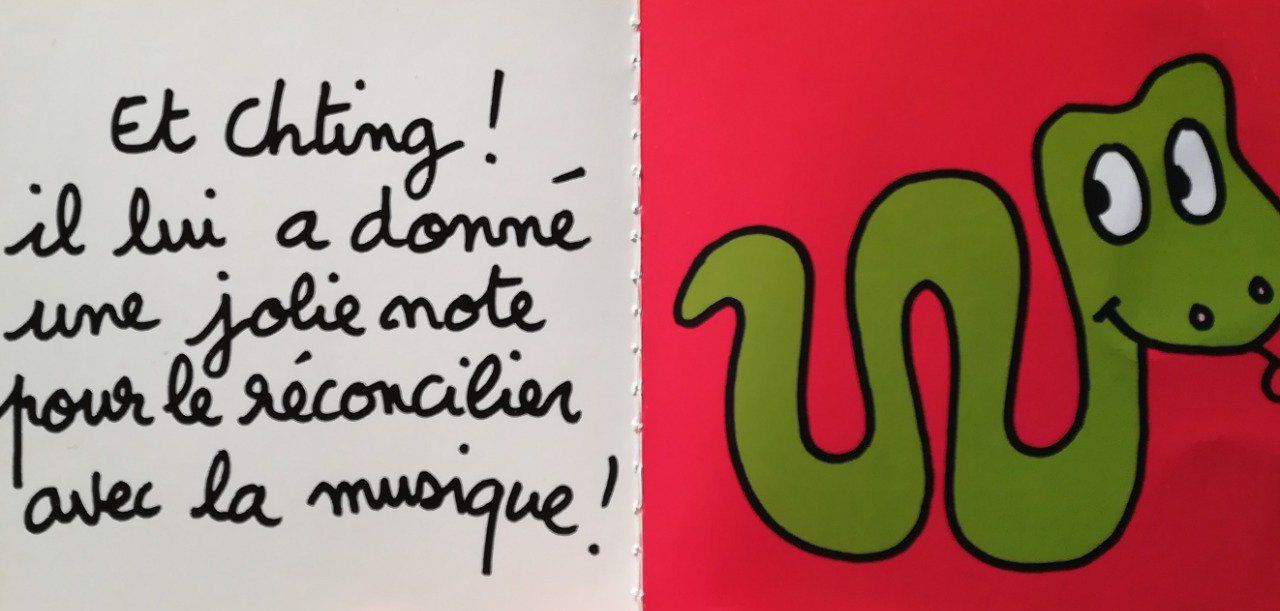 Et Chting !
il lui a donné
une jolie note
pour le réconcilier
avec la musique !